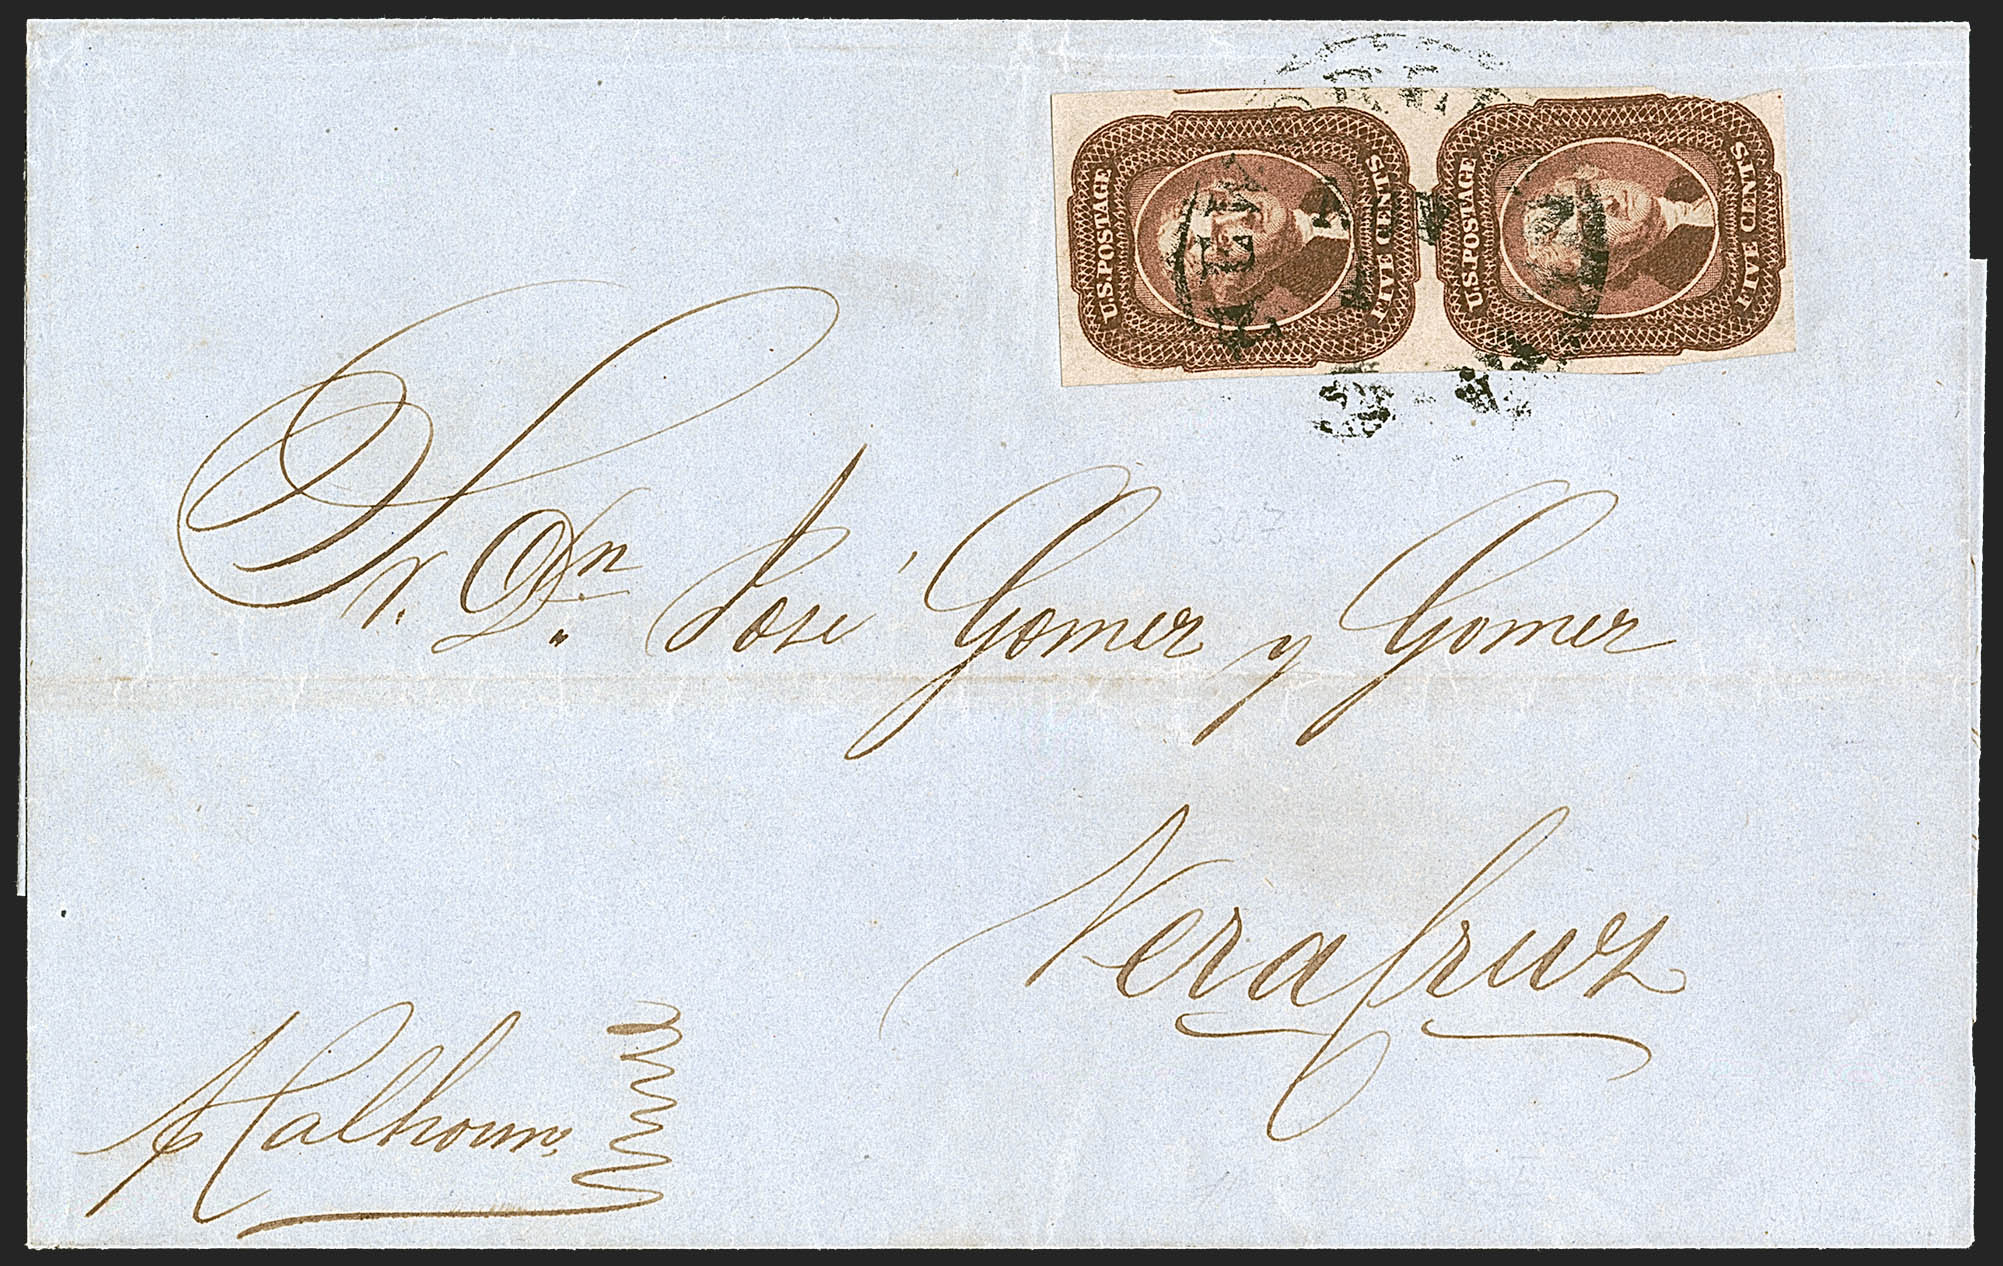 U.S. POSTAGE
FIVE CENTS
U.S. POSTAGE
FIVE CENTS
Sr. Dn. José Gomez y Gomez
Vera Cruz
p Calhoun,